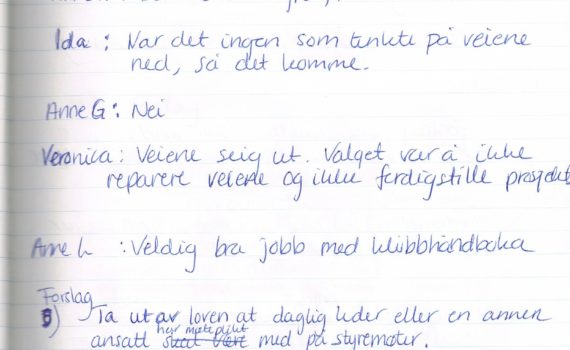 Ida : Var det ingen som tenkte på veiene
ned, så det komme.
Anne G : Nei
Veronica : Veiene seig ut. Valget var å ikke
reparere veiene og ikke ferdigstille prosjekt
Anne L : Veldig bra jobb med klubbhåndboka
Forslag
5) Ta ut av loven at daglig leder eller en annen
har møteplikt
ansatt skal være med på styremøter.